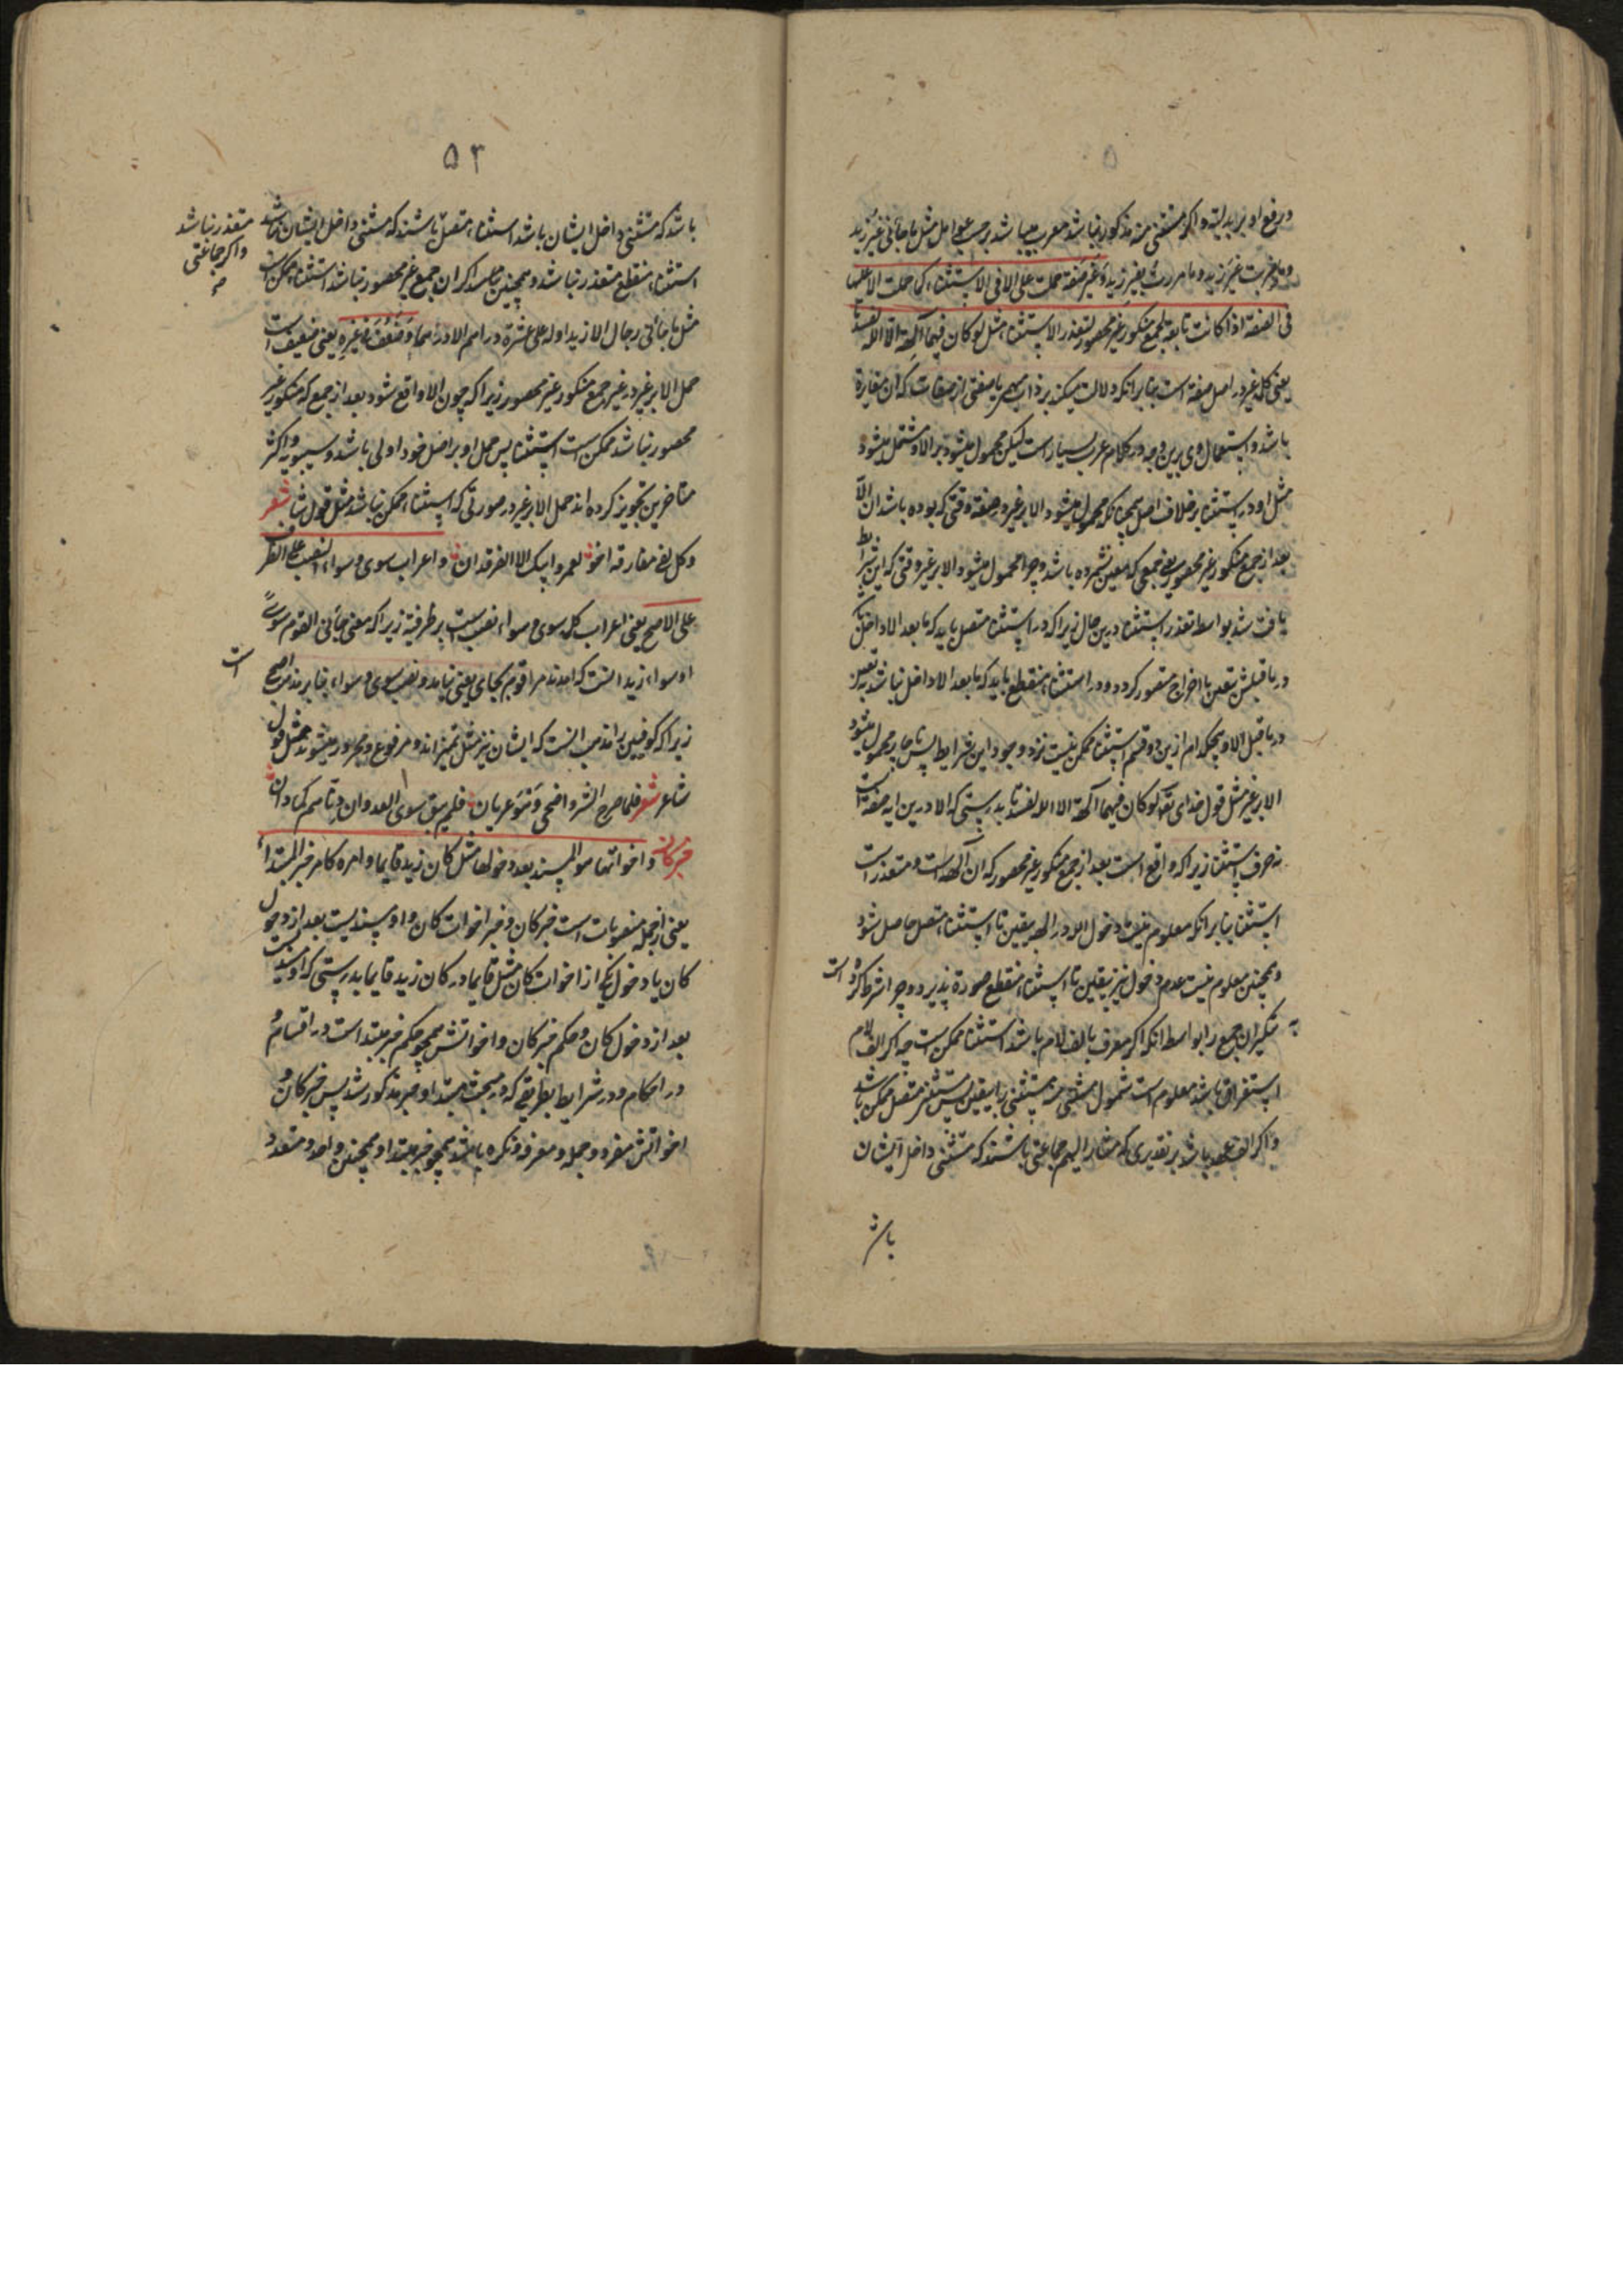 و رفع او بر بدلیة و اگر مستثنی منه مذکور نباشد معرب میباشد بر حسب عوامل مثل ما جائنی غیر زید
و ما ضربت غیر زید و ما مررت بغیر زید و غیر صفة حملت علی الا فی الاستثناء کما حملت الا علیها
فی الصفة اذا کانت تابعة لجمع منکور غیر محصور لتعذر الاستثناء مثل لو کان فیهما آلهة الا الله لفسدتا
یعنی کلمه غیر در اصل صفة است بنابر انکه دلالت میکند بر ذات مبهم با صفتی از صفات که ان مغایرة
باشد و استعمال وی برین وجه در کلام عرب بسیار است لیکن محمول میشود بر الا و مشتمل میشود
مثل او در استثنا بر خلاف اصل همچنانکه محمول میشود الا بر غیر در صفة وقتی که بوده باشد ان الا
بعد از جمع منکور غیر محصور یعنی جمعی که معین نشمرده باشد و چرا محمول میشود الا بر غیر وقتی که این شرایط
یافت شد بواسطه تعذر استثنا درین حال زیرا که در استثنا متصل باید که ما بعد الا داخل باشد
در ما قبلش بیقین تا اخراج متصور گردد و در استثناء منقطع باید که ما بعد الا داخل نباشد بیقین
در ما قبل الا و هیچکدام ازین دو قسم استثنا ممکن نیست نزد وجود این شرایط پس ناچار محمول میشود
الا بر غیر مثل قول خدای تع لو کان فیهما آلهة الا الله لفسدتا بدرستی که الا درین ایه صفة است
نه حرف استثنا زیرا که واقع است بعد از جمع منکور غیر محصور که ان آلهة است و متعذر است
استثنا بنابر انکه معلوم نیست دخول الله در الهه بیقین تا استثناء متصل حاصل شود
و همچنین معلوم نیست عدم دخول نیز بیقین تا استثناء منقطع صورة پذیرد و چرا شرط کرده است
به تنکیر ان جمع را بواسطه انکه اگر معرف بالف لام باشد استثنا ممکن است چه اگر الف لام
استغراق باشد معلوم است شمول مستثنی منه مستثنی را بیقین پس مستثنی متصل ممکن باشد
و اگر الف عهد باشد بر تقدیری که مشار الیهم جماعتی باشند که مستثنی داخل ایشان
باشد
۵۳
باشد که مستثنی داخل ایشان باشد استثناء متصل باشند که مستثنی داخل ایشان نباشد
متعذر نباشد
و اگر جماعتی
صح
استثناء منقطع متعذر نباشد و همچنین اگر ان جمع غیر محصور نباشد استثناء ممکن است
مثل ما جائنی رجال الا زید او له علی عشرة دراهم الا درهما و ضعف فی غیره یعنی ضعیف است
حمل الا بر غیر در غیر جمع منکور غیر محصور زیرا که چون الا واقع شود بعد از جمع که منکور غیر
محصور نباشد ممکن است استثنا پس حمل او بر اصل خود اولی باشد و سیبویه و اکثر
متاخرین تجویز کرده اند حمل الا بر غیر در صورتی که استثناء ممکن نباشد مثل قول شاعر شعر
و کل اخ مفارقه اخوه لعمر ابیک الا الفرقدان و اعراب سوی و سواء النصب علی الظرف
علی الاصح یعنی اعراب کلمه سوی و سواء نصب است بر ظرفیة زیرا که معنی جائنی القوم سوی
او سواء زید انست که امدند مرا قوم بجای یعنی زید و نصب سوی و سواء بنابر مذهب اصح است
زیرا که کوفیین را مذهب انست که ایشان نیز مثل غیر اند و مرفوع و مجرور میشوند همچو قول
شاعر شعر فلما صرح الشر و اضحی و هو عریان فلم یبق سوی العدوان دناهم کما دانوا
خبر کان و اخواتها هو المسند بعد دخولها مثل کان زید قایما و امره کامر خبر المبتدا
یعنی از جمله منصوبات است خبر کان و خبر اخوات کان و او مسندیست بعد از دخول
کان یا دخول یکی از اخوات کان مثل قایما در کان زید قایما بدرستی که او مسند است
بعد از دخول کان و حکم خبر کان و اخواتش همچو حکم خبر مبتدا است در اقسام و
در احکام و در شرایط بطریقی که در مبحث مبتدا و خبر مذکور شد پس خبر کان و
اخواتش مفرد و جمله و معرفه و نکره باشد همچو خبر مبتدا و همچنین واحد و متعدد